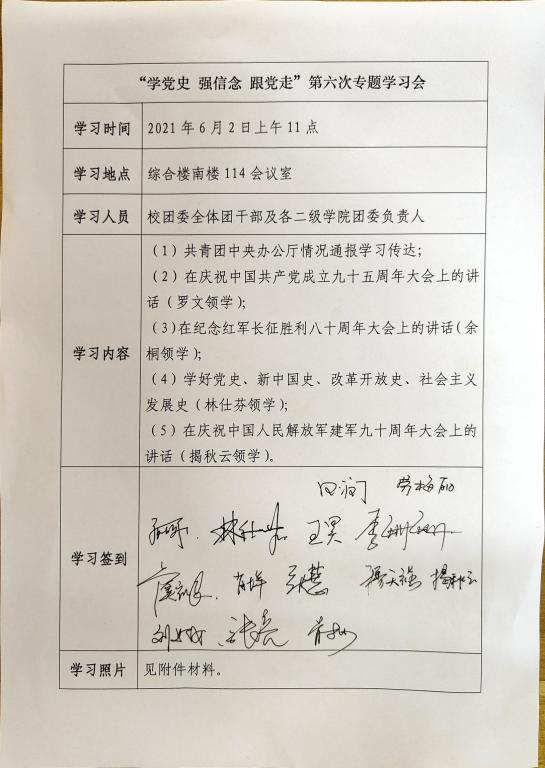 “学党史 强信念 跟党走”第六次专题学习会
学习时间 2021年6月2日上午11点
学习地点 综合楼南楼114会议室
学习人员 校团委全体团干部及各二级学院团委负责人
学习内容
（1）共青团中央办公厅情况通报学习传达;
（2）在庆祝中国共产党成立九十五周年大会上的讲
话（罗文领学）;
（3）在纪念红军长征胜利八十周年大会上的讲话（余
桐领学）;
（4）学好党史、新中国史、改革开放史、社会主义
发展史（林仕芬领学）;
（5）在庆祝中国人民解放军建军九十周年大会上的
讲话（揭秋云领学）。
学习签到
揭秋云
学习照片 见附件材料。